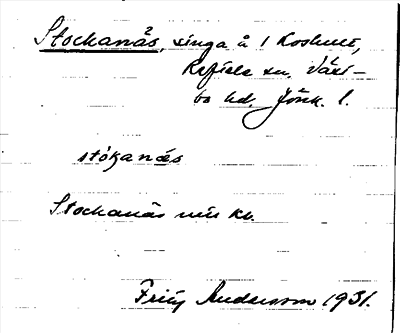 Stockanäs, singa å 1 Koshult,
Reftele sn. Väst-
bo hd. Jönk. l.
stókanäs
Stockanäs
Fritz Andersson 1931.